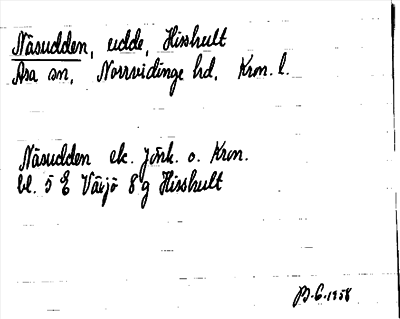 Näsudden, udde, Hisshult
Asa sn, Norrvidinge hd, Kron. l.
Näsudden ek. Jönk. o. Kron.
bl. 5 E Växjö 8 g Hisshult
B. G. 1958